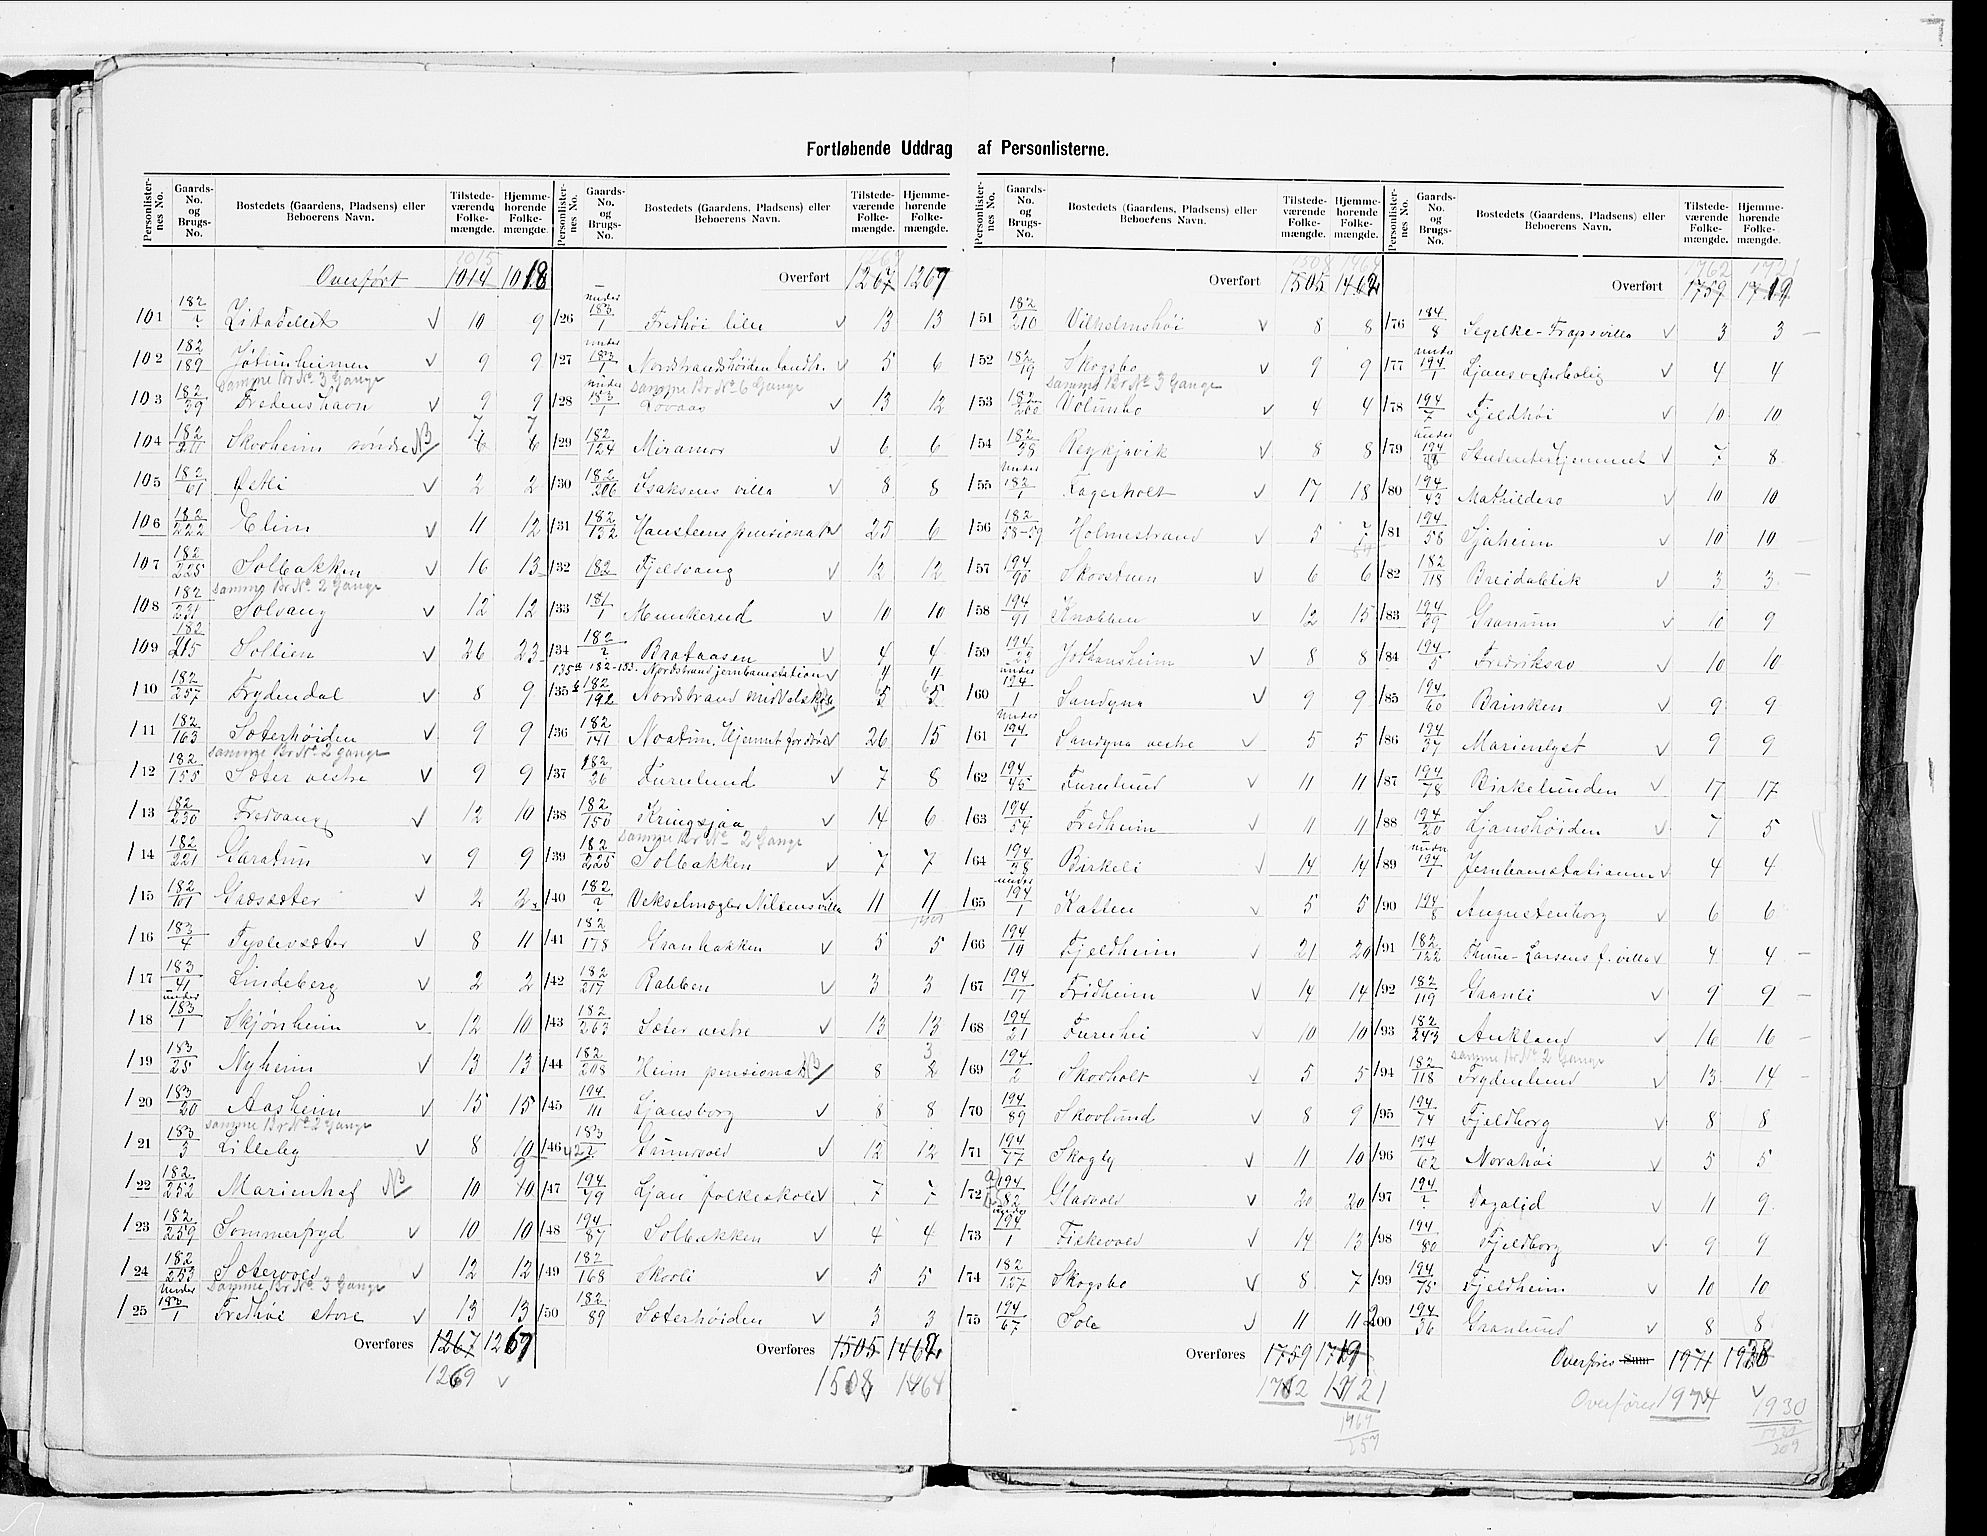 Fortløbende Uddrag af Personlisterne.
Personlister-nes No. | Gaards-No. og Brugs-No. | Bostedets (Gaardens, Pladsens) eller Beboerens Navn. | Tilstede-værende Folke-mængde. | Hjemme-hørende Folke-mængde.
Overført 1014 1018
101 182/? Littadellet v 10 9
102 182/189 Jøtunheimen v 9 9
samme Br N° 3 Gange
103 182/39 Fredenshavn v 9 9
104 182/211 Skovheim søndre NB 6 6
105 183/61 Østli v 2 2
106 182/222 Elim v 11 12
107 182/225 Solbakken v 16 13
samme Br N° 2 Gange
108 182/231 Solvang v 12 12
109 182/215 Sollien v 26 23
110 182/257 Frydendal v 8 9
111 182/163 Sæterhøiden v 9 9
samme Br N° 2 gange
112 182/155 Sæter vestre v 9 9
113 182/230 Fredvang v 12 10
114 182/221 Garatun v 9 9
115 182/101 Græsæter v 2 2
116 183/4 Tyslevsæter v 8 11
117 183/41 Lindeberg v 2 2
118 under 183/1 Skjønheim v 12 10
119 183/25 Nyheim v 13 13
120 183/20 Aasheim v 15 15
samme Br N° 2 Gange
121 183/3 Lilleby v 8 10
122 182/252 Marienhaf NB 10 10
123 182/259 Sommerfryd v 10 10
124 182/253 Sætervold v 12 12
samme Br N° 3 Gange
125 under 183/1 Fredhøi store v 13 13
Overføres 1267 1267
1269 v
Personlister-nes No. | Gaards-No. og Brugs-No. | Bostedets (Gaardens, Pladsens) eller Beboerens Navn. | Tilstede-værende Folke-mængde. | Hjemme-hørende Folke-mængde.
Overført 1267 1267
126 under 183/1 Fredhøi lille v 13 13
127 under 183/1 Nordstrandshøiden landh. v 5 6
samme Br N° 6 Gange
128 under 183/1 Lovaas v 13 12
129 182/124 Miramar v 6 6
130 182/206 Isaksens villa v 8 8
131 182/132 Hansteens pensionat v 25 6
132 182 Fjeldvang v 12 12
133 181/1 Munkerud v 10 10
134 182/? Brataasen v 4 4
135a 182-183. Nordstrand jernbanestation v 4 4
135b 182/192 Nordstrand middelskole 5 5
136 182/141 Noatun, Hjemmet for døve v 26 15
137 182/26 Furulund v 7 8
138 182/150 Kringsjaa v 14 6
samme Br N° 2 Gange
139 182/225 Solbakken v 7 7
140 182/? Vekselmægler Nilsens villa 11 11
141 182/178 Granbakken v 5 5
142 182/217 Rabben v 3 3
143 182/263 Sæter vestre v 13 13
144 182/208 Heim pensionat NB 8 8
145 194/111 Ljansborg v 8 8
146 183/2 Grünvold v 12 12
147 194/49 Ljan folkeskole v 7 7
148 194/87 Solbakken v 4 4
149 182/168 Skovli v 5 5
150 182/89 Sæterhøiden v 3 3
Overføres 1505 1462
1508 1464
Personlister-nes No. | Gaards-No. og Brugs-No. | Bostedets (Gaardens, Pladsens) eller Beboerens Navn. | Tilstede-værende Folke-mængde. | Hjemme-hørende Folke-mængde.
1508 1464
Overført 1505 1462
151 182/210 Vilhelmshøi v 8 8
152 182/19 Skogsbo v 9 9
samme Br N° 3 Gange
153 182/260 Volumbo v 4 4
154 182/38 Reykjavik v 8 8
155 under 182/1 Fagerholt v 17 18
156 182/58-59 Holmestrand v 5 7
157 194/90 Skovstuen v 6 6
158 194/91 Knabben v 12 15
159 194/23 Johansheim v 8 8
160 under 194/1 Sandyna v 9 9
161 under 194/1 Sandyna vestre v 5 5
162 194/45 Furulund v 11 11
163 194/54 Fredheim v 11 11
164 194/38 Birkeli v 14 14
165 under 194/1 Katten v 5 5
166 194/19 Fjeldheim v 21 20
167 194/17 Fridheim v 14 14
168 194/21 Furuhei v 10 10
169 194/2 Skovholt v 5 5
170 194/89 Skovlund v 8 9
171 194/77 Skogly v 11 10
172 194/82 Gladvold v 20 20
173 under 194/1 Fiskevold v 14 13
174 182/127 Skogsbo v 8 7
175 194/67 Sole v 11 11
Overføres 1759 1719
1762 1721
1464
257
Personlister-nes No. | Gaards-No. og Brugs-No. | Bostedets (Gaardens, Pladsens) eller Beboerens Navn. | Tilstede-værende Folke-mængde. | Hjemme-hørende Folke-mængde.
1762 1721
Overført 1759 1719
176 184/8 Segelke-Traps villa v 3 3
177 under 194/1 Ljans vesterbolig v 4 4
178 194/7 Fjeldhøi v 10 10
179 under 194/88 Studenterhjemmet v 7 8
180 194/43 Mathildero v 10 10
181 194/58 Sjøheim v 10 10
182 182/118 Breidablik v 3 3
183 194/39 Granum v 10 9
184 194/5 Fredriksro v 10 10
185 194/60 Brinken v 9 9
186 194/37 Marienlyst v 9 9
187 194/78 Birkelunden v 17 17
188 194/20 Ljanshøiden v 7 5
189 under 194/1 Jernbanestationen v 4 4
190 194/8 Augustenborg v 6 6
191 182/122 Thune-Larsens f. villa v 4 4
192 182/119 Granli v 9 9
193 182/243 Aukland v 16 16
samme Br N° 2 Gange
194 182/118 Frydenlund v 13 14
195 194/74 Fjeldborg v 8 8
196 194/62 Norahøi v 5 5
197 194/? Dagalid v 11 9
198 194/80 Fjeldborg v 9 9
199 194/75 Fjeldheim v 10 10
200 194/36 Granlund v 8 8
Overføres Sum 1971 1928
Overføres 1974 1930